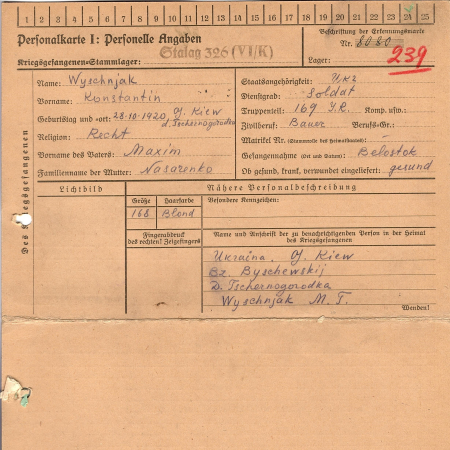 1 2 3 4 5 6 7 8 9 10 11 12 13 14 15 16 17 18 19 20 21 22 23 24 25
Personalkarte I: Personelle Angaben
Stalag 326 (VI/K)
Kriegsgefangenen-Stammlager:
Beschriftung der Erkennungsmarke
Nr. 8080
Lager:
239
Des Kriegsgefangenen
Name: Wyschnjak
Vorname: Konstantin
Geburtstag und -ort: 28.10.1920, G. Kiew
d. Tschernogorodka
Religion: Recht
Vorname des Vaters: Maxim
Familienname der Mutter: Nasarenko
Staatsangehörigkeit: Ukr
Dienstgrad: Soldat
Truppenteil: 169 I.R. Komp. usw.:
Zivilberuf: Bauer Berufs-Gr.:
Matrikel Nr. (Stammrolle des Heimatstaates):
Gefangennahme (Ort und Datum): Belostok
Ob gesund, krank, verwundet eingeliefert: gesund
Lichtbild
Nähere Personalbeschreibung
Größe
Haarfarbe
Besondere Kennzeichen:
168
Blond
Fingerabdruck
des rechten! Zeigefingers
Name und Anschrift der zu benachrichtigenden Person in der Heimat
des Kriegsgefangenen
Ukraina, G. Kiew
Bz. Byschewskij
D. Tschernogorodka
Wyschnjak M. T.
Wenden!